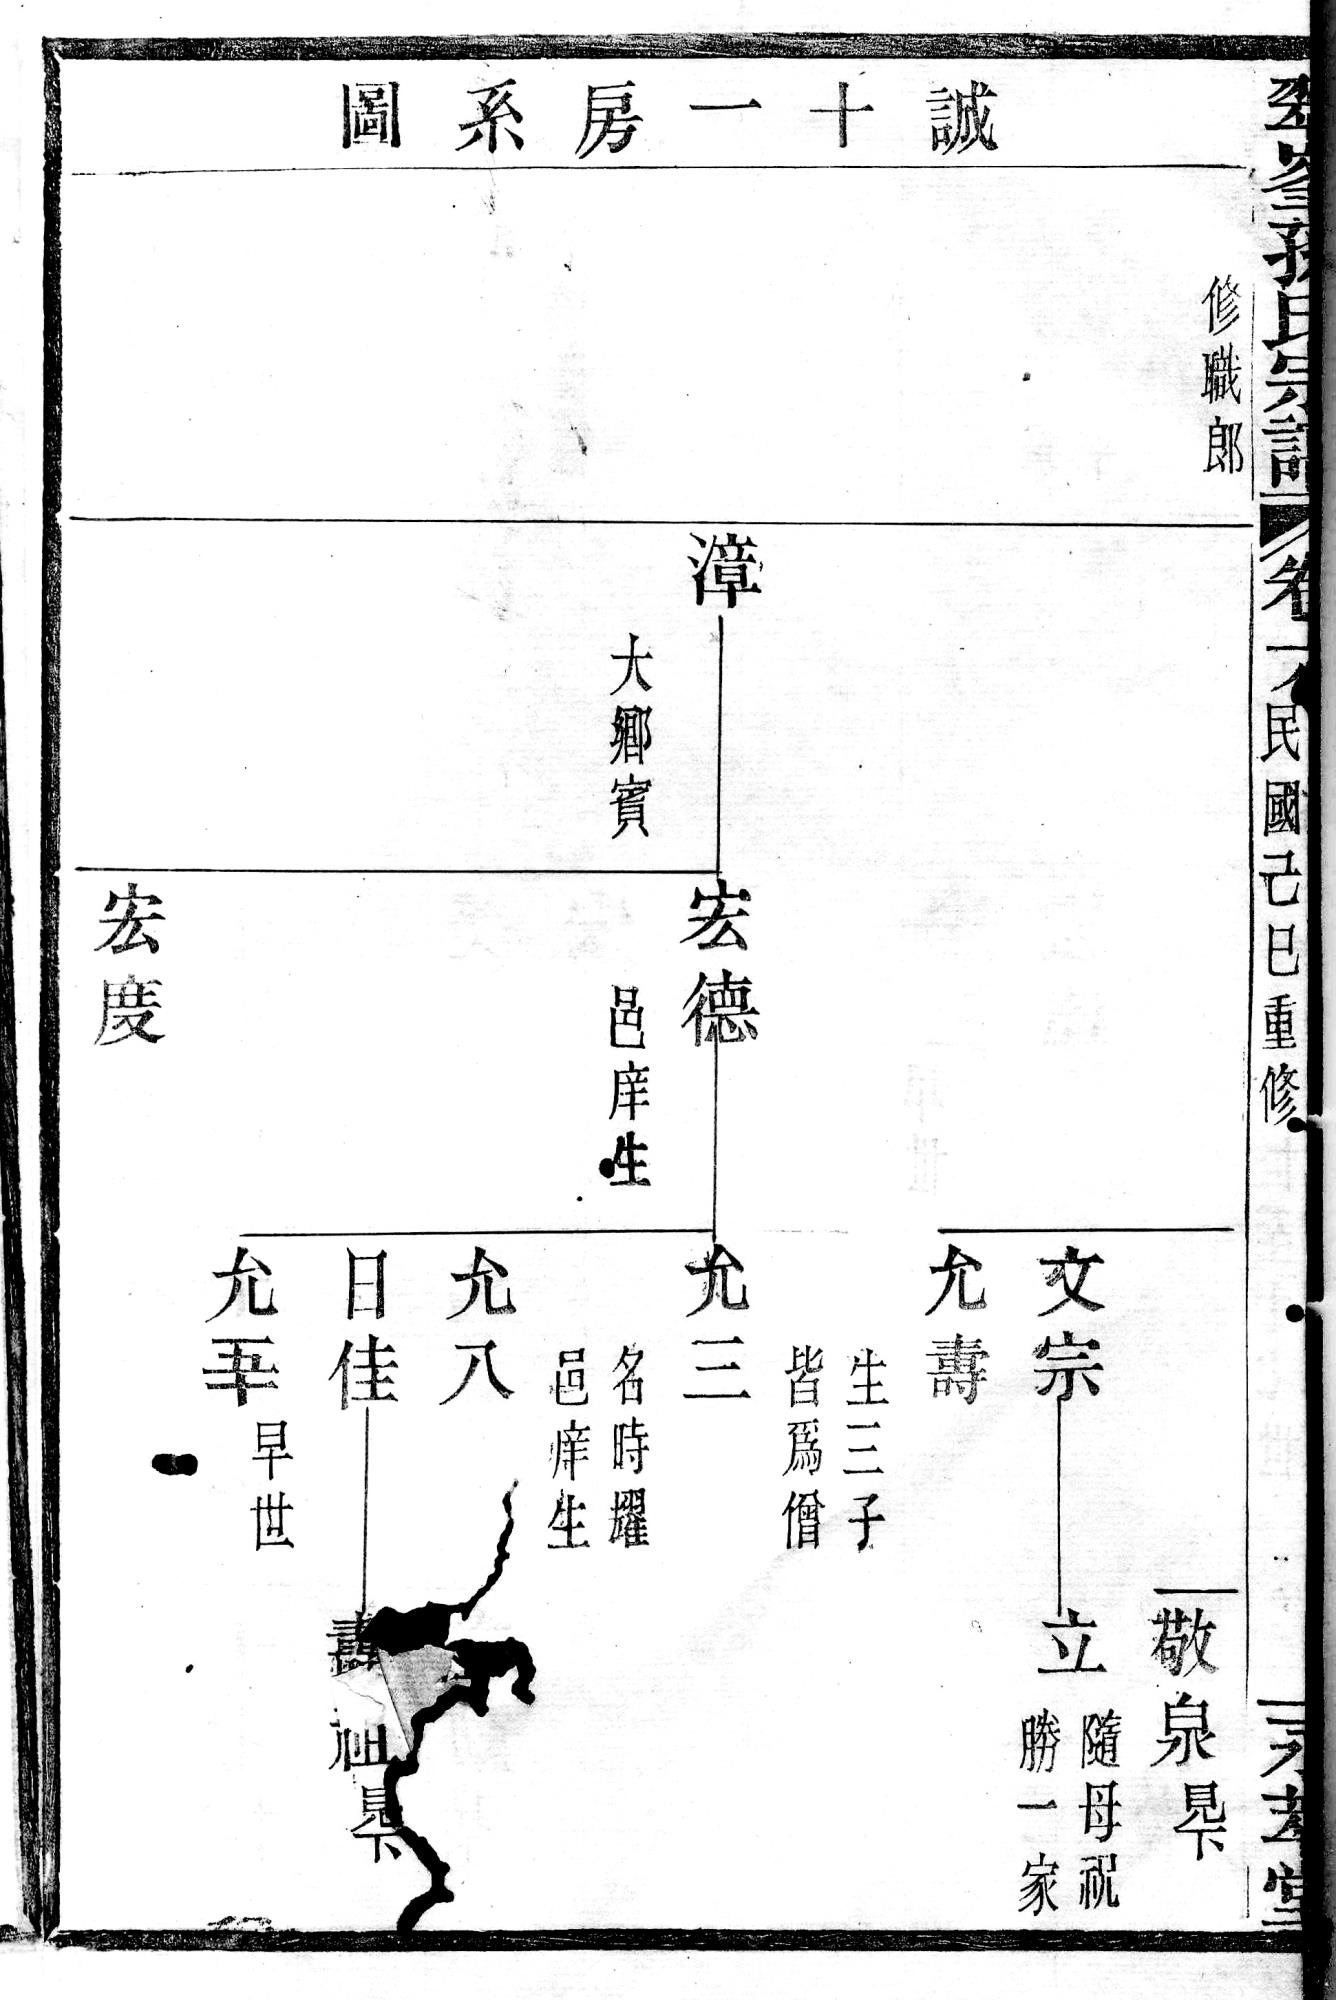 誠十一房系圖
孫氏宗譜
卷一
民國己巳重修
堂
修職郎
敬泉
見下
文宗
立
隨母祝
勝一家
允壽
漳
大鄉賓
宏德
邑庠生
允三
生三子
皆爲僧
允八
名時耀
邑庠生
日佳
壽祖
見下
允五
早世
宏度